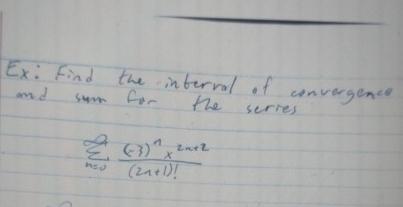 Ex: Find the interval of convergence
and sum for the series
∞
Σ (-3)^n x^{2n+2} / (2n+1)!
n=0